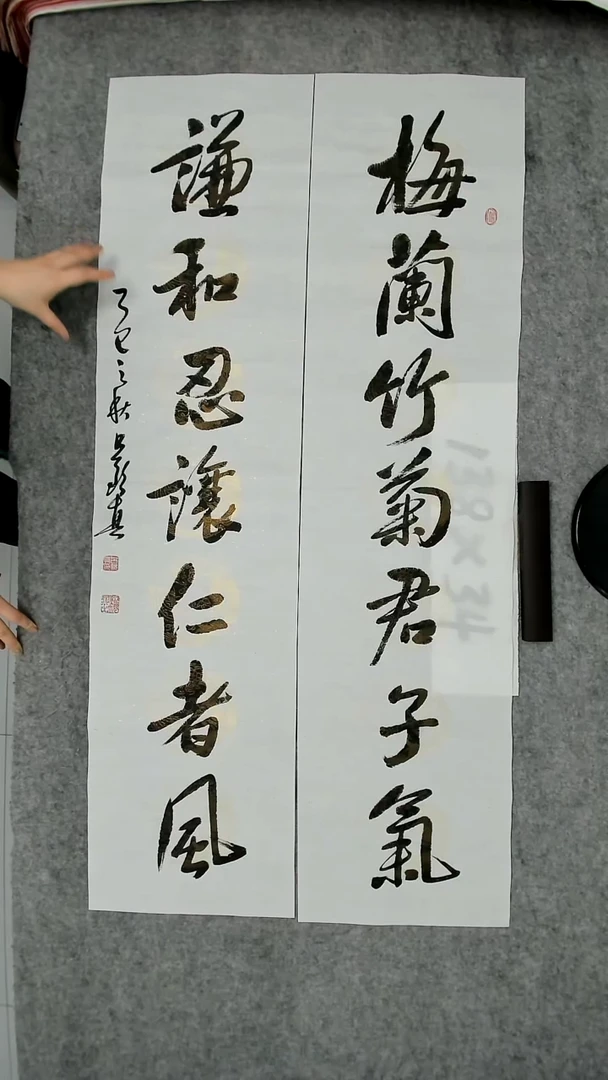 梅蘭竹菊君子氣
謙和忍讓仁者風
乙巳之秋
138×34